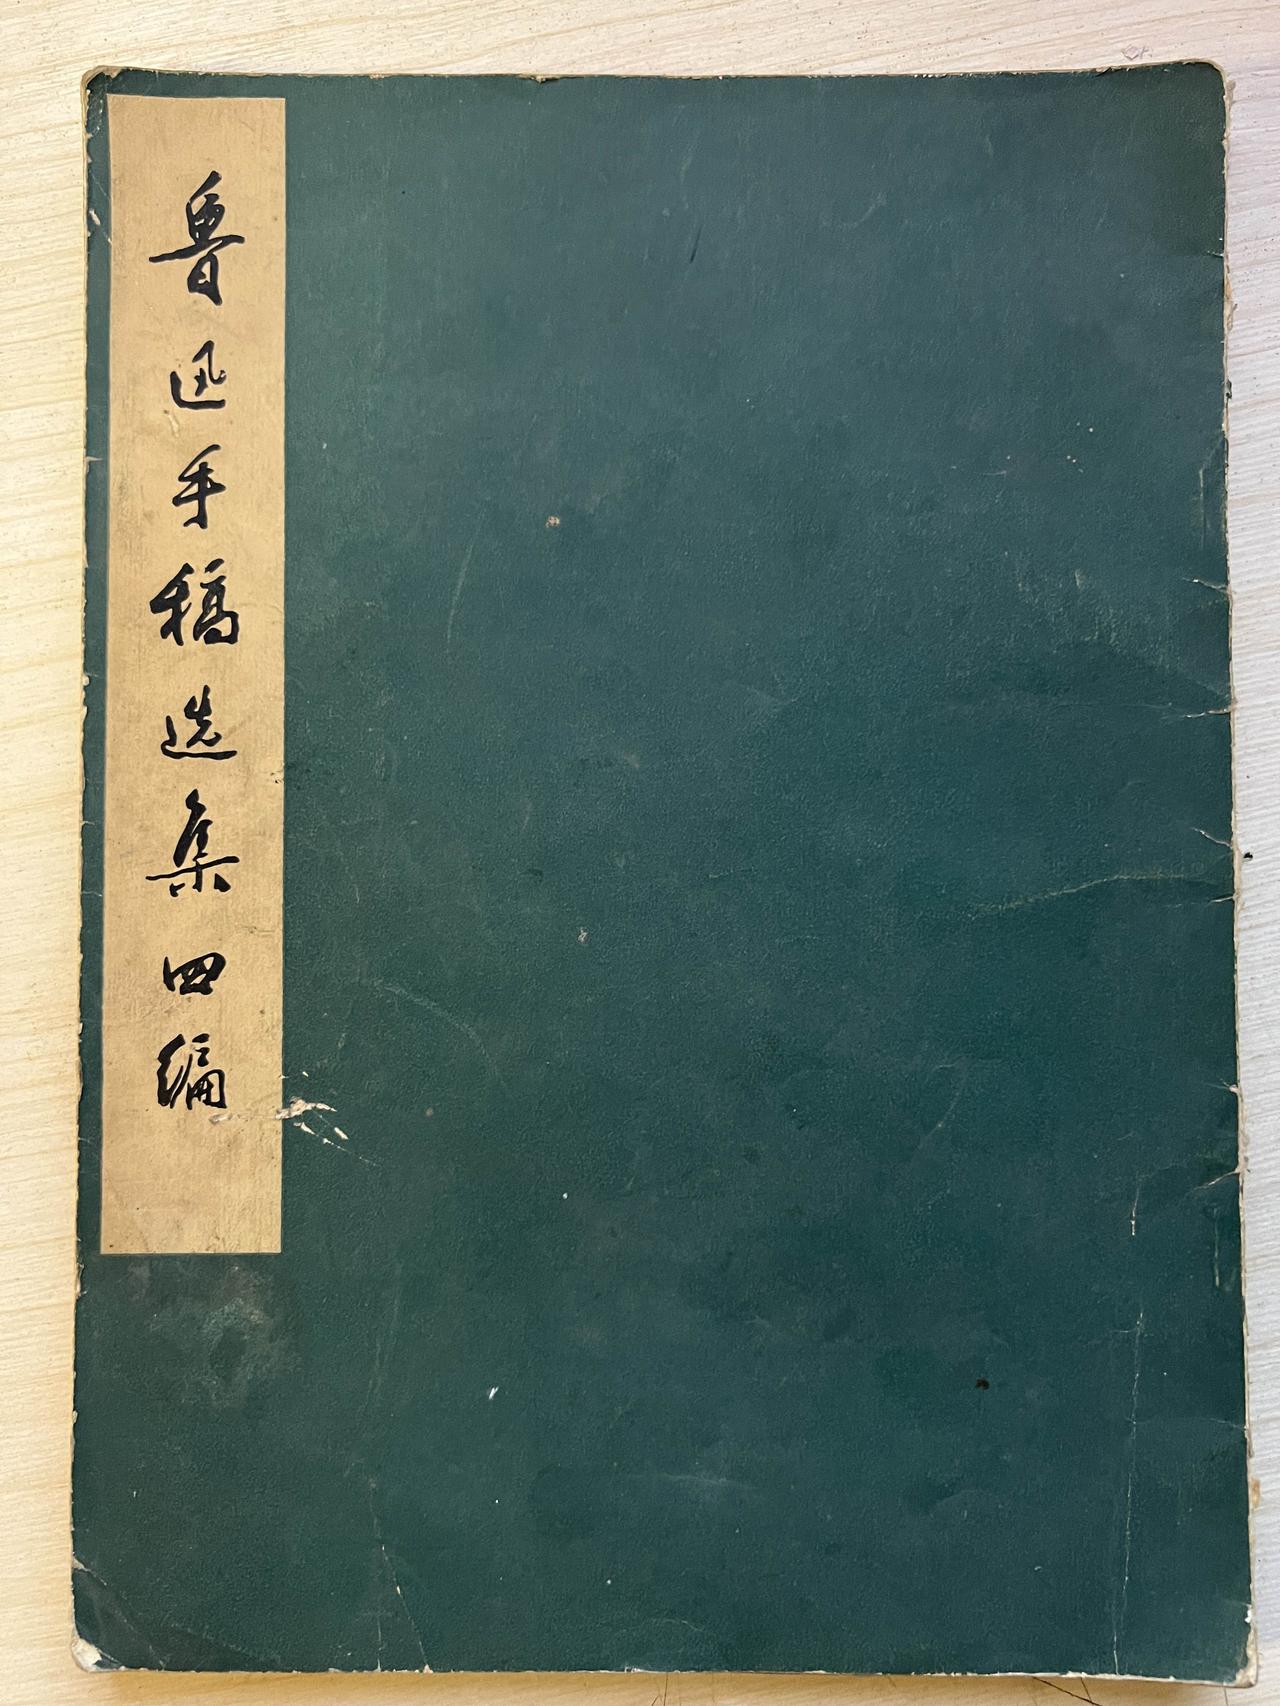 鲁迅手稿选集四编